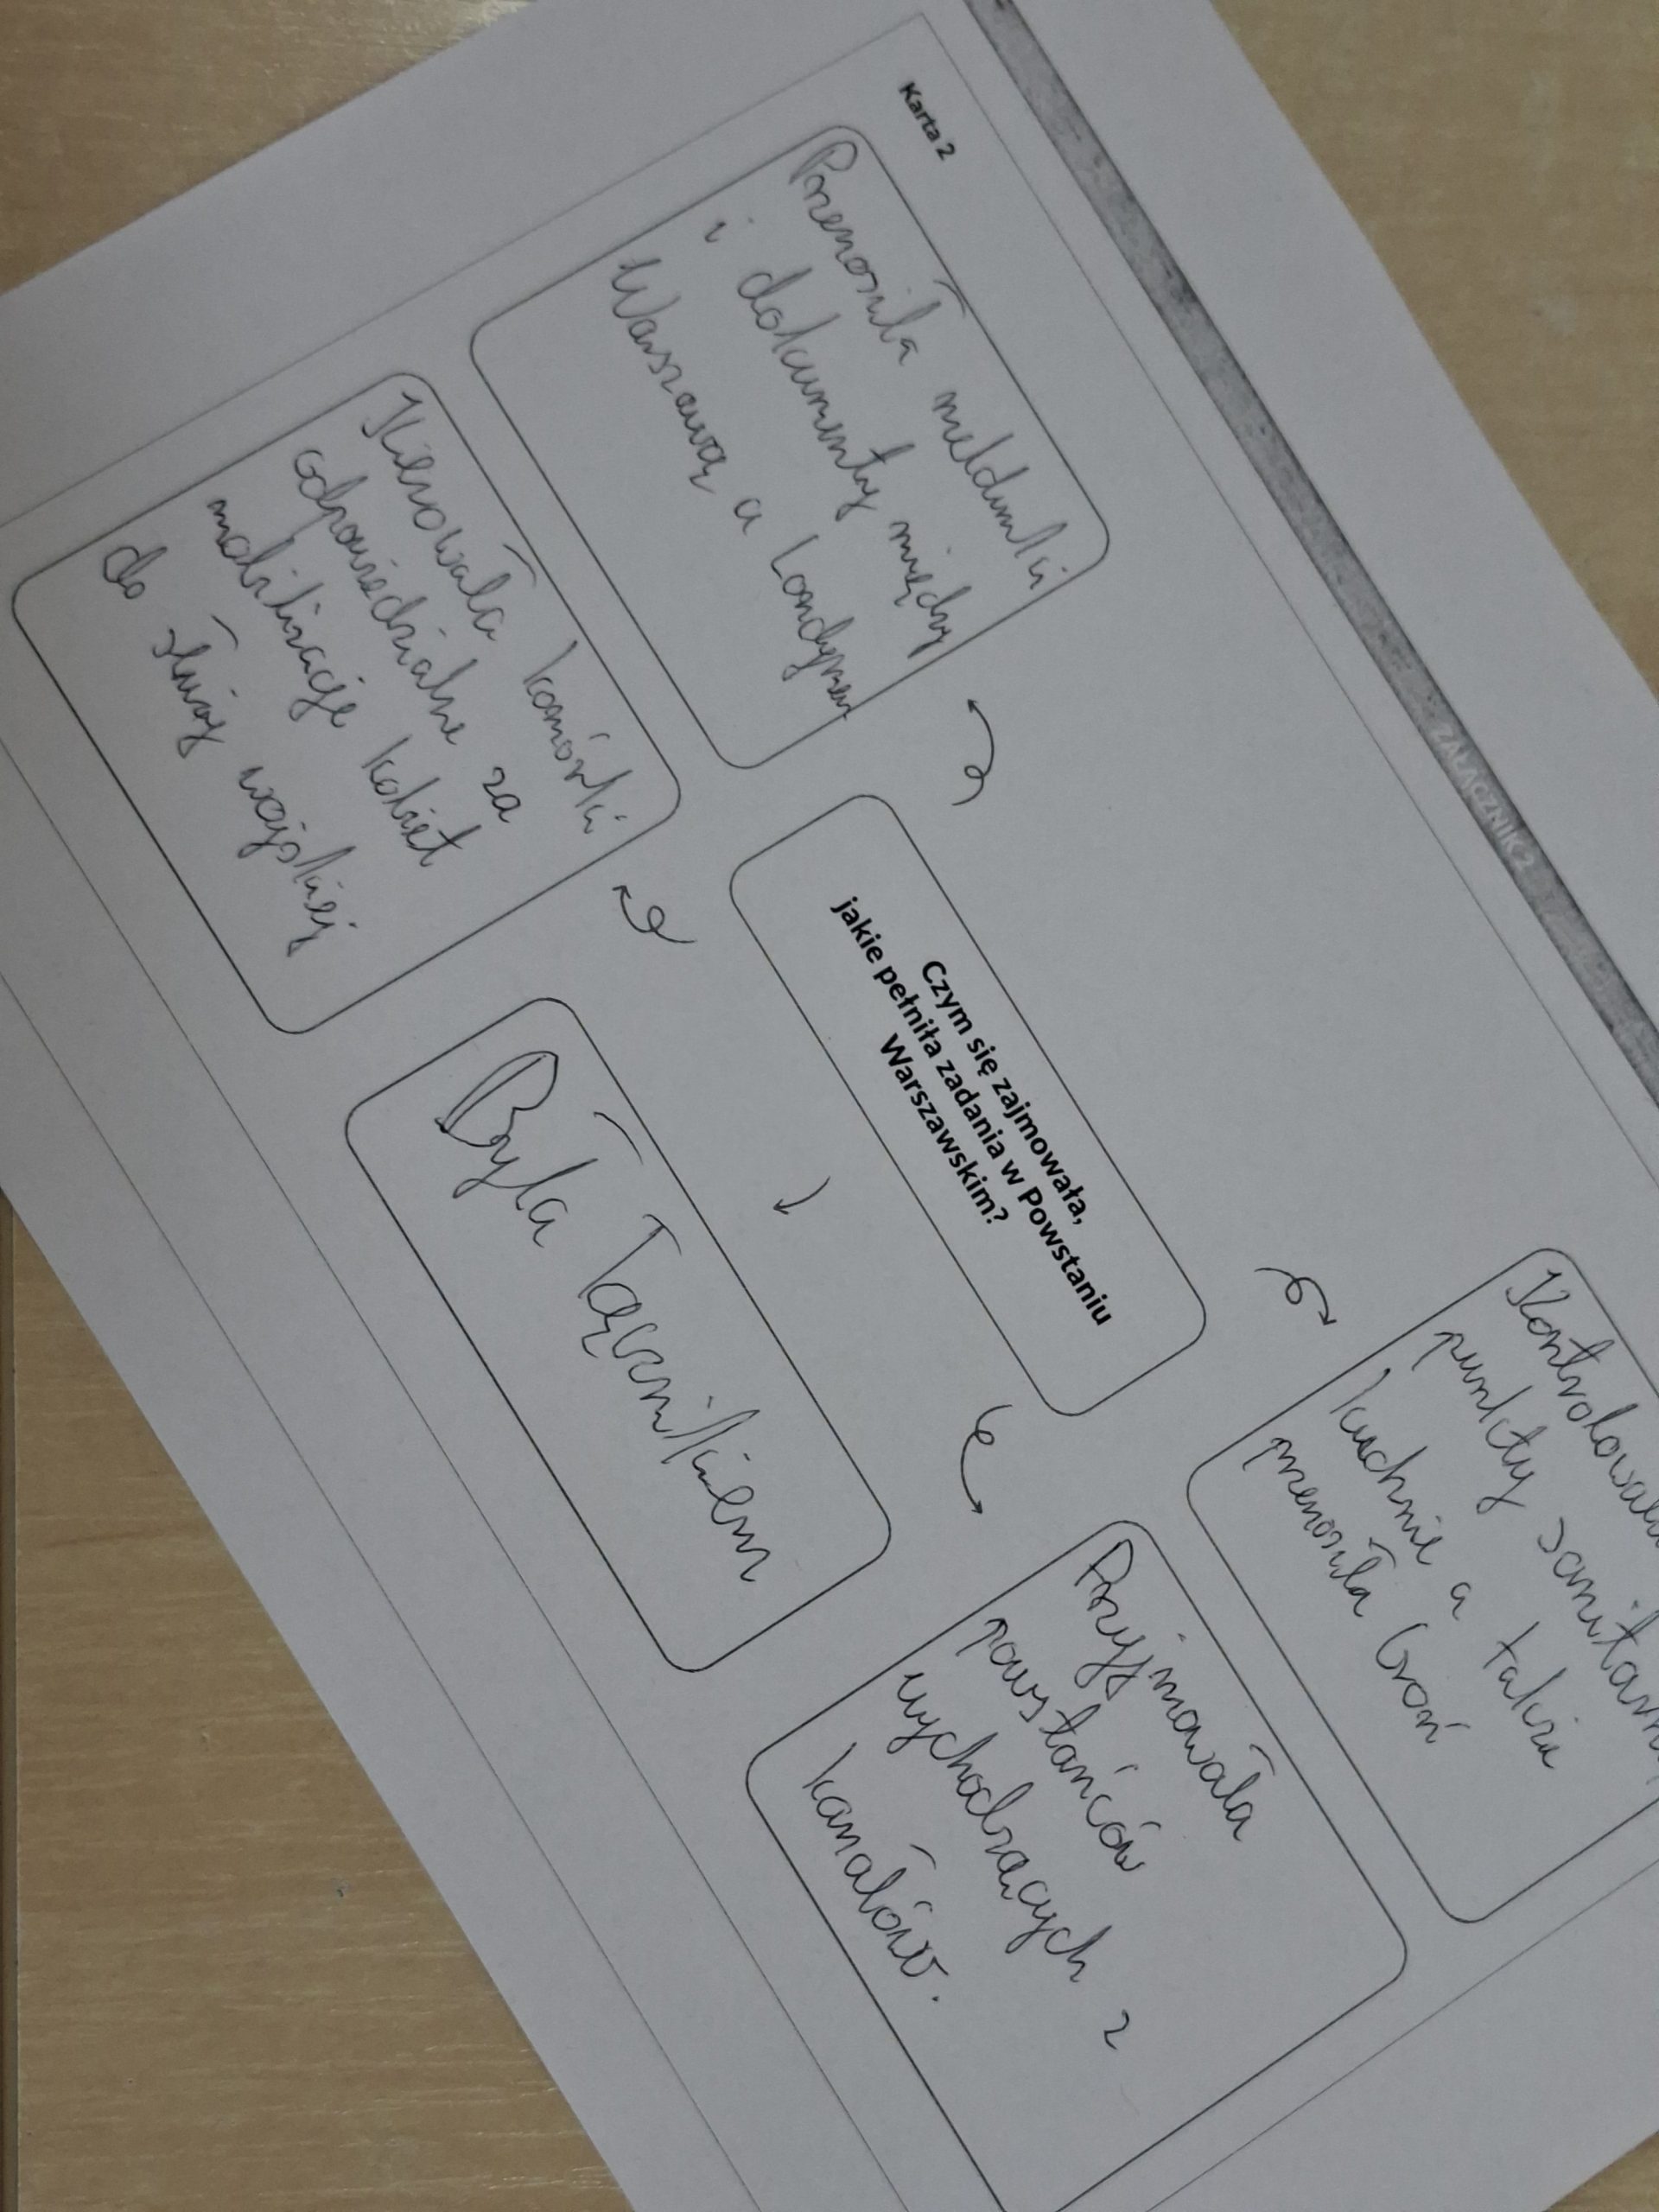 ZAŁĄCZNIK 2
Karta 2
Przenosiła meldunki
i dokumenty między
Warszawą a Londynem
Kierowała komórki
odpowiedzialne za
mobilizacje kobiet
do służby wojskiej
Czym się zajmowała,
jakie pełniła zadania w Powstaniu
Warszawskim?
Była Łącznikiem
Kontrolowała
punkty sanitarne
kuchnie a także
przenosiła broń
Przyjmowała
powstańców
wychodzących z
kanałów.